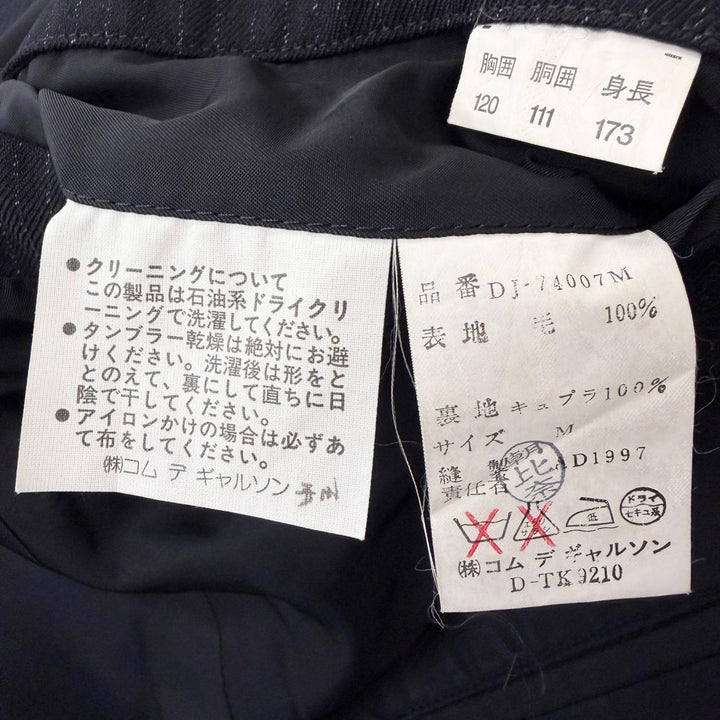 胸囲 胴囲 身長
120 111 173
● クリーニングについて
この製品は石油系ドライクリ
ーニングで洗濯してください。
● タンブラー乾燥は絶対にお避
けください。洗濯後は形をと
とのえて、裏にして直ちに日
陰で干してください。
● アイロンかけの場合は必ずあ
て布をしてください。
㈱コム デ ギャルソン
品番 DJ-74007M
表地 毛 100%
裏地 キュプラ100%
サイズ M
縫製
責任者 AD1997
低
ドライ
セキユ系
㈱コム デ ギャルソン
D-TK9210